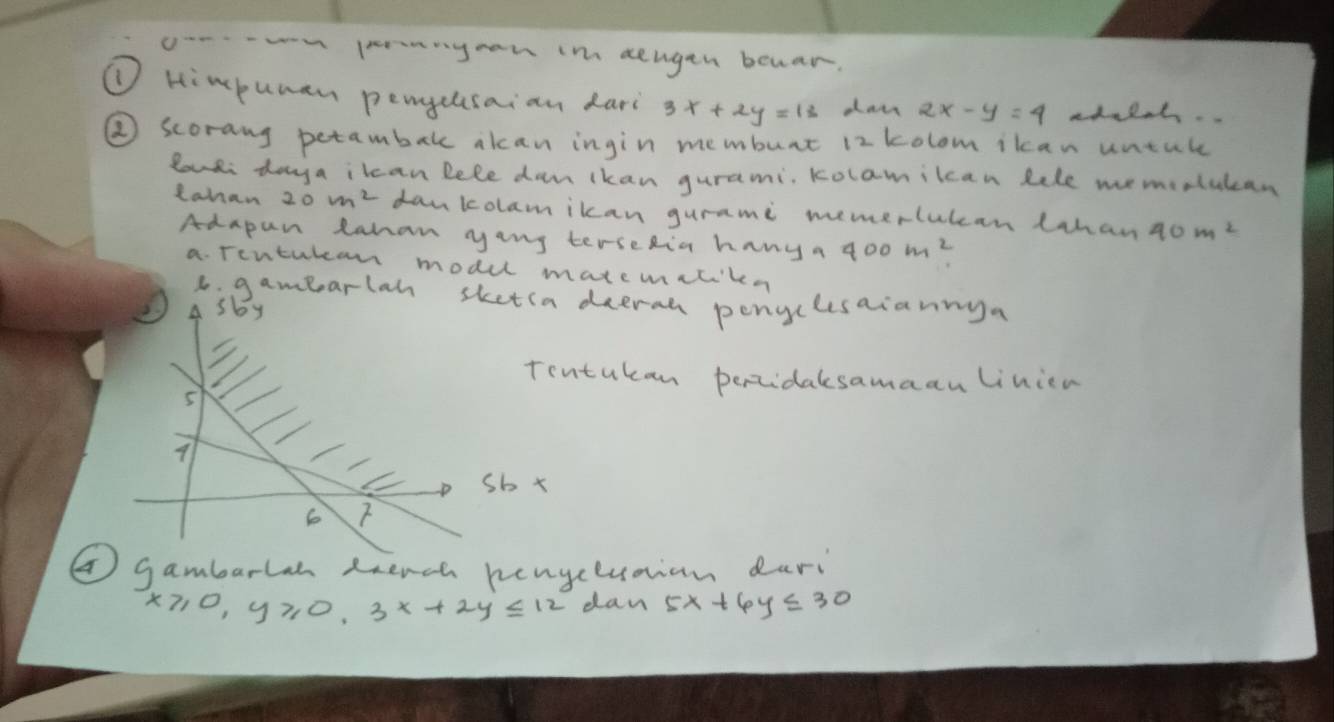 dengan benar.
① Himpunan penyelesaian dari 3x + 2y = 13 dan 2x - y = 4 adalah ..
② Seorang petambak ikan ingin membuat 12 kolom ikan untuk
budi daya ikan lele dan ikan gurami. Kolam ikan lele memerlukan
lahan 20 m² dan kolam ikan gurame memerlukan lahan 40 m²
Adapun lahan yang tersedia hanya 400 m².
a. Tentukan model matematika
b. gambarlah sketsa daerah penyelesaiannya
③ sby
Tentukan pertidaksamaan linier
5
4
Sb x
6 7
④ gambarlah daerah penyelesaian dari
x ≥ 0, y ≥ 0, 3x + 2y ≤ 12 dan 5x + 6y ≤ 30